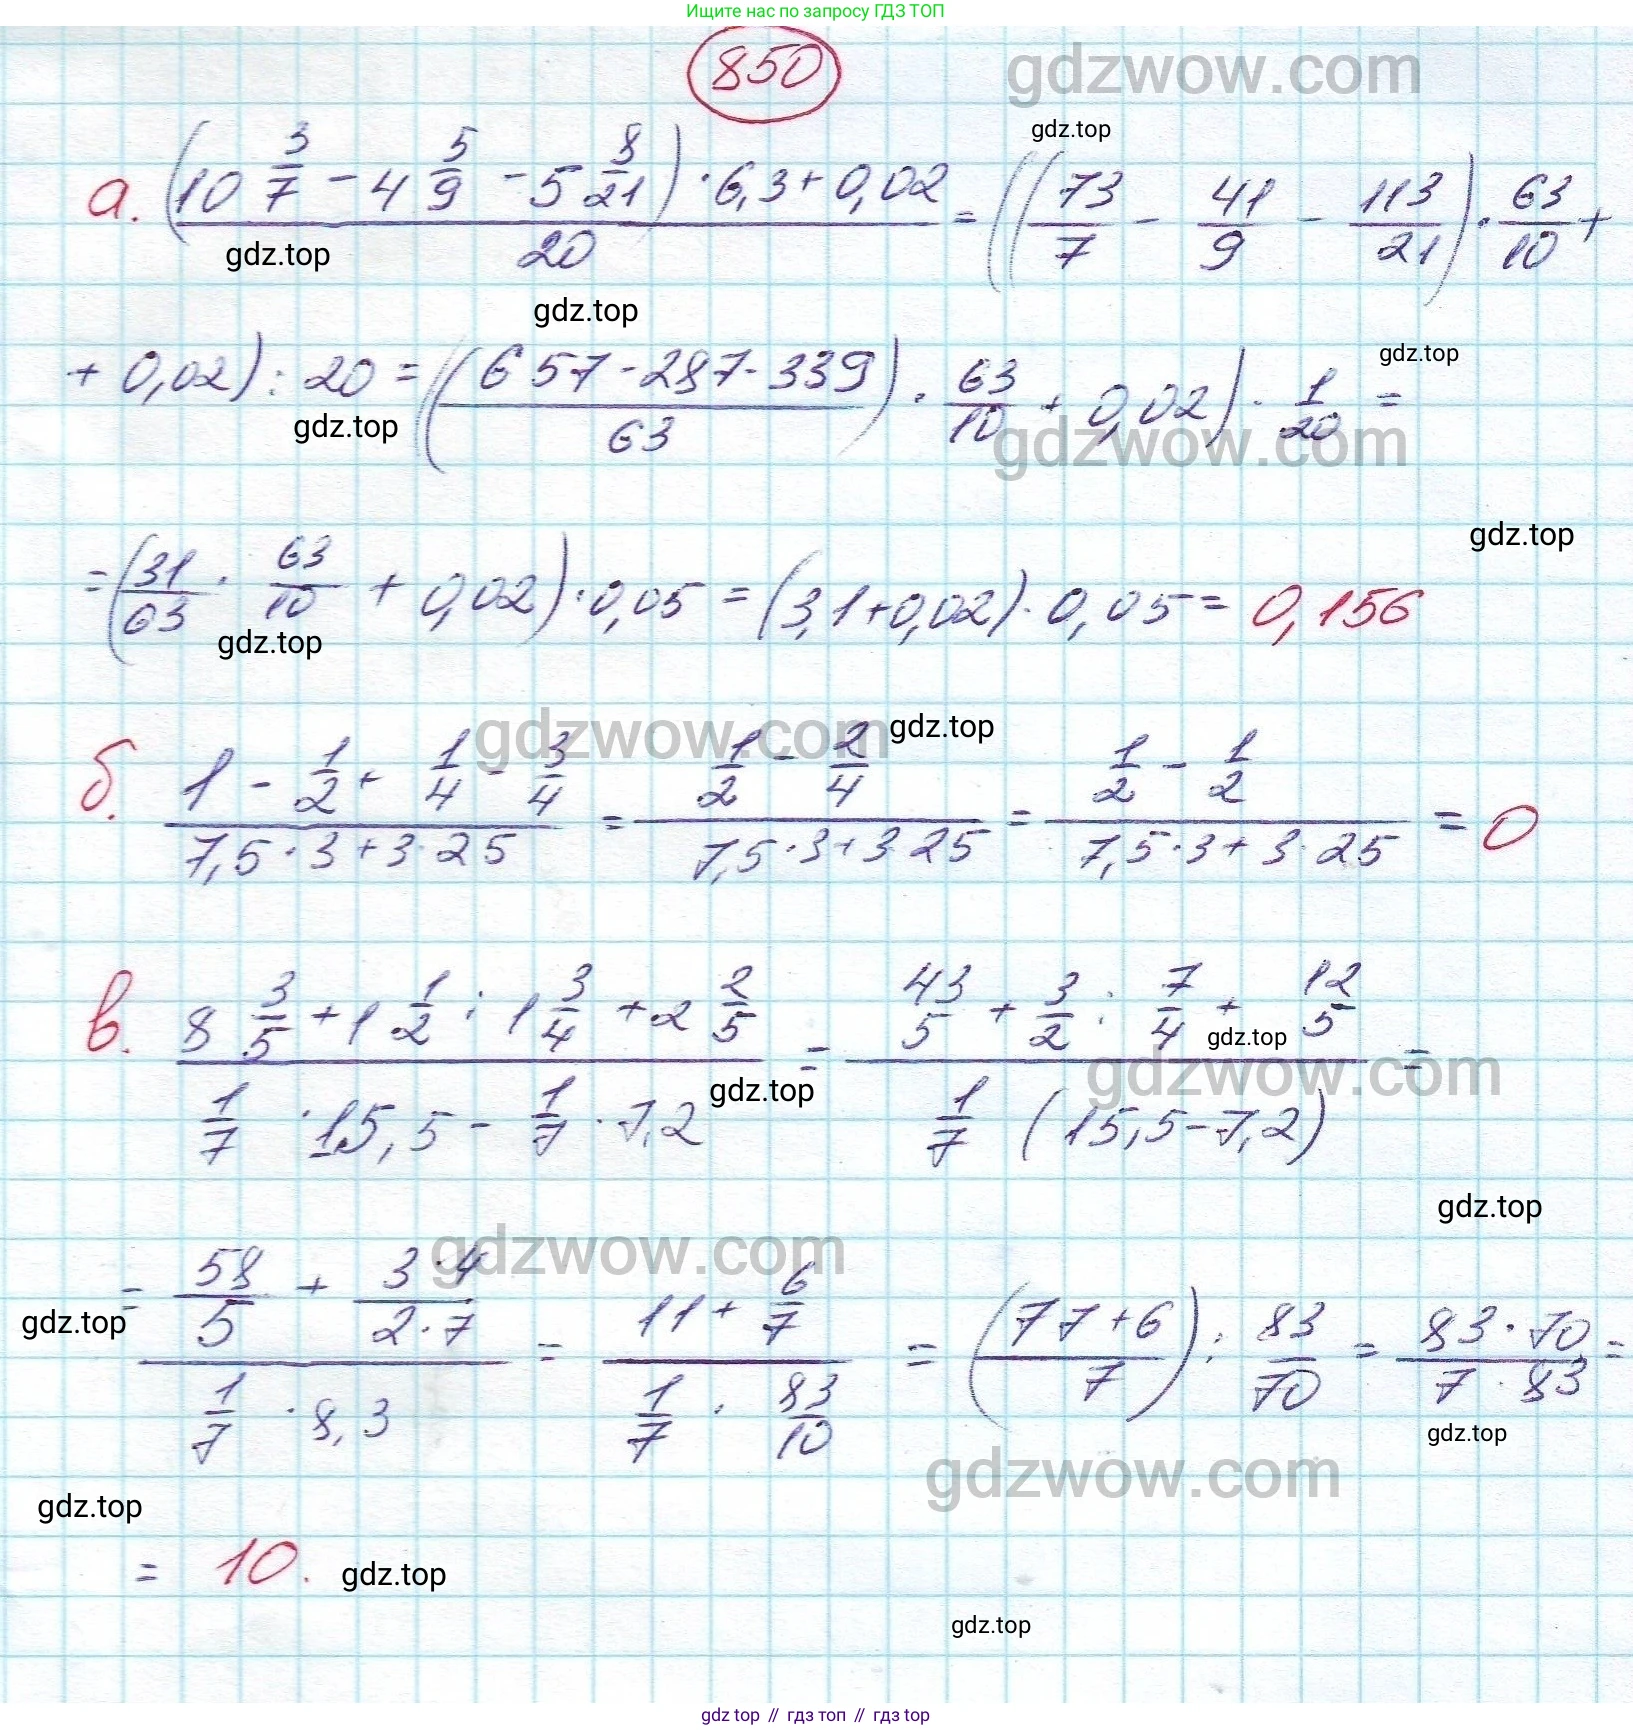 Ищите нас по запросу ГДЗ ТОП
850
gdzwow.com
gdz.top
а. (10 3/7 - 4 5/9 - 5 8/21) · 6,3 + 0,02 / 20 = ((73/7 - 41/9 - 113/21) · 63/10 +
gdz.top
gdz.top
+ 0,02) : 20 = ((657 - 287 - 339 / 63) · 63/10 + 0,02) · 1/20 =
gdz.top
gdz.top
gdzwow.com
gdz.top
= (31/63 · 63/10 + 0,02) · 0,05 = (3,1 + 0,02) · 0,05 = 0,156
gdz.top
gdzwow.com
gdz.top
б. 1 - 1/2 + 1/4 - 3/4 / 7,5 · 3 + 3 · 25 = 1/2 - 2/4 / 7,5 · 3 + 3 · 25 = 1/2 - 1/2 / 7,5 · 3 + 3 · 25 = 0
в. 8 3/5 + 1 1/2 : 1 3/4 + 2 2/5 / 1/7 · 15,5 - 1/7 · 7,2 = 43/5 + 3/2 : 7/4 + 12/5 / 1/7 (15,5 - 7,2) =
gdz.top
gdz.top
gdzwow.com
gdz.top
gdzwow.com
= 58/5 + 3·4/2·7 / 1/7 · 8,3 = 11 + 6/7 / 1/7 · 83/10 = (77+6/7) : 83/70 = 83·70/7·83 =
gdz.top
gdz.top
gdzwow.com
gdz.top
= 10.
gdz.top
gdz.top
gdz top // гдз топ // gdz top